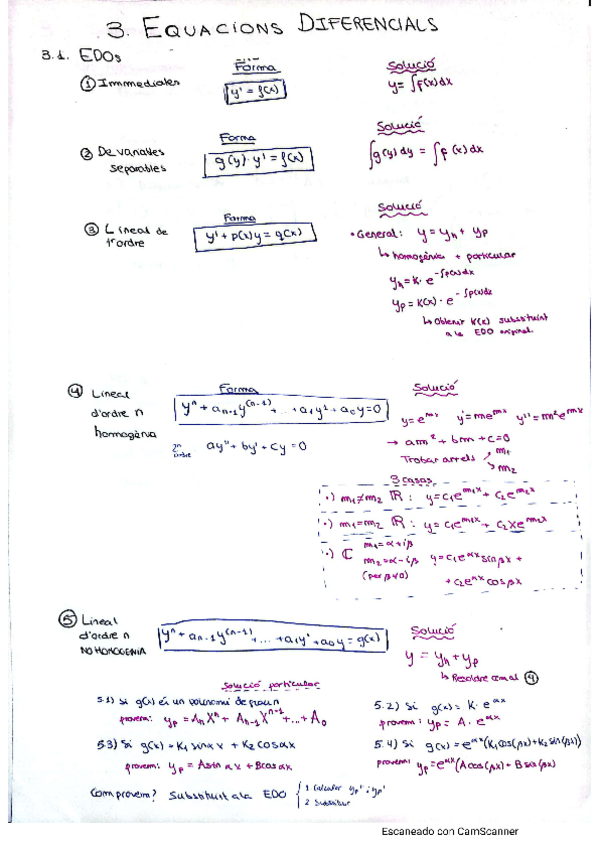 3. EQUACIONS DIFERENCIALS
3.1. EDOs
Forma
Solució
① Immmediates
y' = f(x)
y = ∫f(x)dx
Forma
Solució
② De variables separables
g(y)· y' = f(x)
∫g(y)dy = ∫f(x)dx
Forma
Solució
③ Lineal de 1r ordre
y' + p(x)y = q(x)
• General: y = yh + yp
↳ homogènia + particular
yh = K· e^-∫p(x)dx
yp = K(x)· e^-∫p(x)dx
↳ Obtenir K(x) substituint
a la EDO original.
Forma
Solució
④ Lineal
d'ordre n
homogènia
yⁿ + an-1 y^(n-1) + ... + a1y' + a0y = 0
2n ordre ay'' + by' + cy = 0
y = e^mx y' = me^mx y'' = m²e^mx
→ am² + bm + c = 0
Trobar arrels m1 m2
3 casos
·) m1≠m2 ℝ: y = c1e^m1x + c2e^m2x
·) m1=m2 ℝ: y = c1e^m1x + c2xe^m2x
·) ℂ m1 = α+iβ
m2 = α-iβ y = c1e^αx sinβx +
(per β≠0) + c2e^αx cosβx
⑤ Lineal
d'ordre n
NO HOMOGENIA
yⁿ + an-1 y^(n-1) + ... + a1y' + a0y = g(x)
Solució
y = yh + yp
↳ Resoldre com al ④
Solució particular
5.1) Si g(x) és un polinomi de grau n
provem: yp = AnXⁿ + An-1X^n-1 + ... + A0
5.2) Si g(x) = K· e^αx
provem: yp = A· e^αx
5.3) Si g(x) = K1 sinαx + K2 cosαx
provem: yp = A sin αx + B cosαx
5.4) Si g(x) = e^αx(K1cos(βx)+K2 sin(βx))
provem: yp = e^αx(A cos(βx) + B sin(βx)
Comprovem? Substituit a la EDO
1 Calcular yp' i yp''
2 Substituir
Escaneado con CamScanner